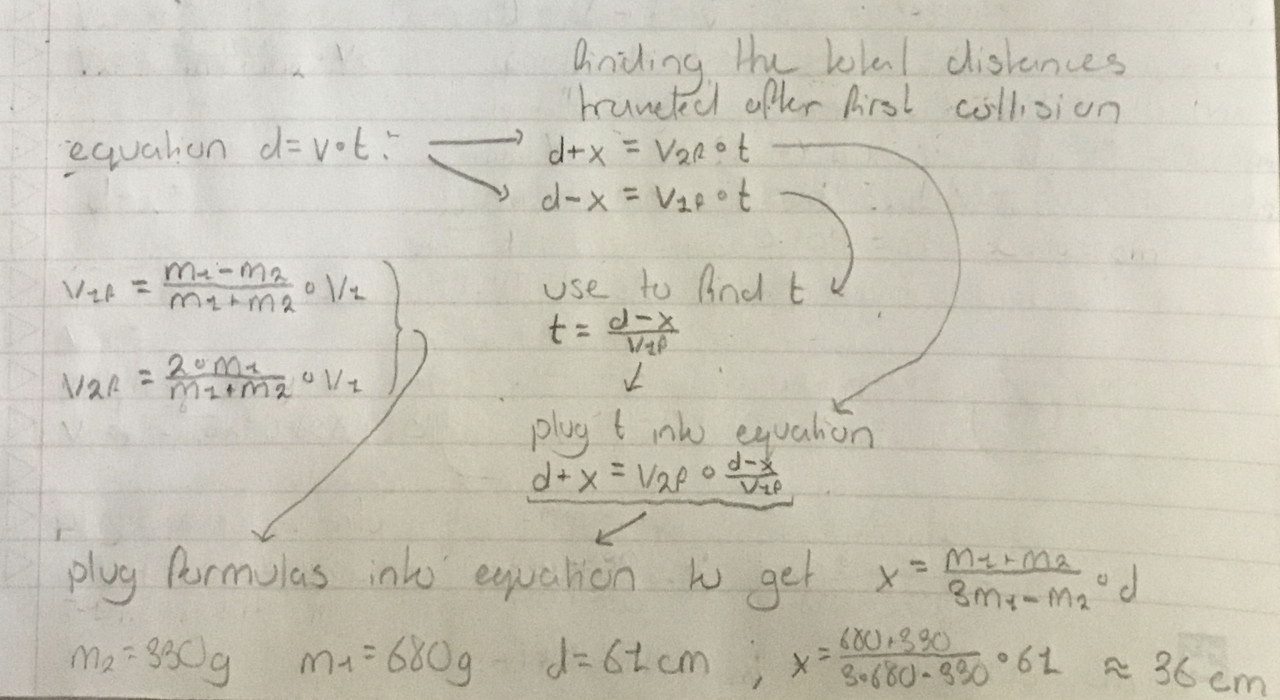 finding the total distances
traveled after first collision
equation d=v∘t:- d+x = v2f∘t
d-x = v1f∘t
v1f = m1-m2/m1+m2 ∘ v1
use to find t
t = d-x/v1f
v2f = 2∘m1/m1+m2 ∘ v1
plug t into equation
d+x = v2f ∘ d-x/v1f
plug formulas into equation to get x = m1+m2/3m1-m2 ∘ d
m2=330g m1=680g d=61cm ; x= 680+330/3∘680-330 ∘ 61 ≈ 36cm